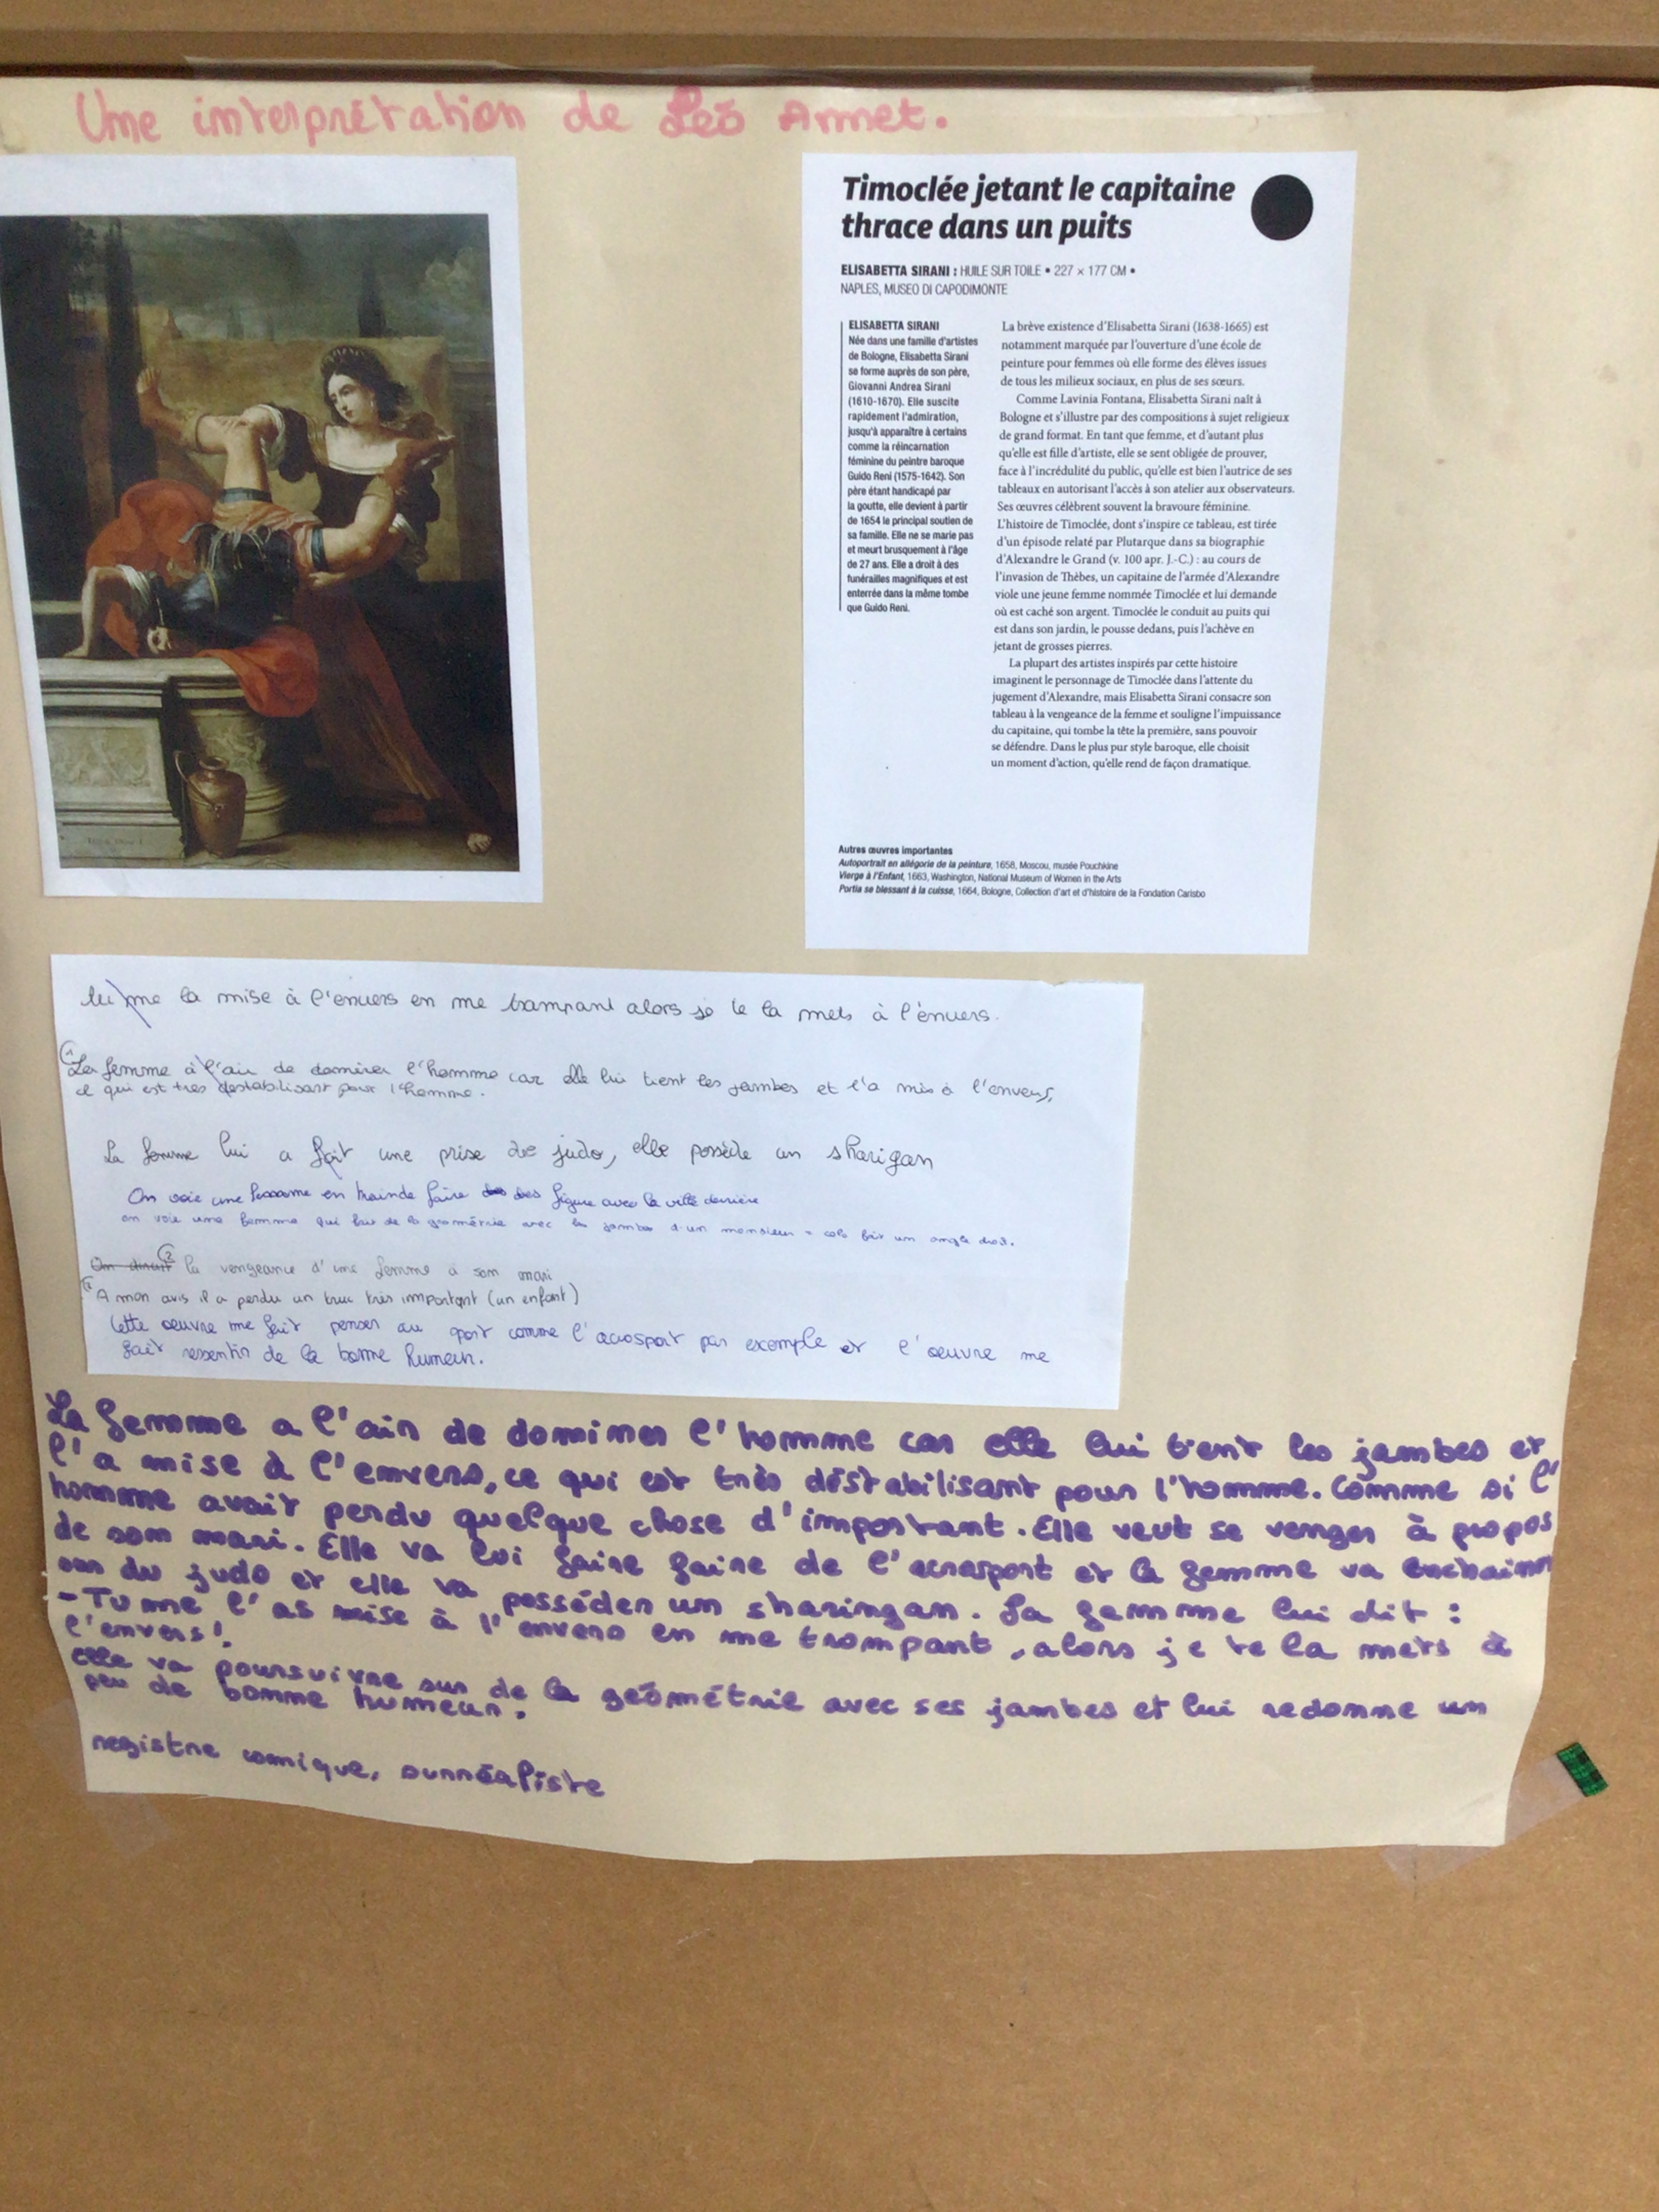 Une interprétation de Léo Armet.
Timoclée jetant le capitaine
thrace dans un puits
ELISABETTA SIRANI : HUILE SUR TOILE • 227 × 177 CM •
NAPLES, MUSEO DI CAPODIMONTE
ELISABETTA SIRANI
Née dans une famille d'artistes
de Bologne, Elisabetta Sirani
se forme auprès de son père,
Giovanni Andrea Sirani
(1610-1670). Elle suscite
rapidement l'admiration,
jusqu'à apparaître à certains
comme la réincarnation
féminine du peintre baroque
Guido Reni (1575-1642). Son
père étant handicapé par
la goutte, elle devient à partir
de 1654 le principal soutien de
sa famille. Elle ne se marie pas
et meurt brusquement à l'âge
de 27 ans. Elle a droit à des
funérailles magnifiques et est
enterrée dans la même tombe
que Guido Reni.
La brève existence d'Elisabetta Sirani (1638-1665) est
notamment marquée par l'ouverture d'une école de
peinture pour femmes où elle forme des élèves issues
de tous les milieux sociaux, en plus de ses sœurs.
Comme Lavinia Fontana, Elisabetta Sirani naît à
Bologne et s'illustre par des compositions à sujet religieux
de grand format. En tant que femme, et d'autant plus
qu'elle est fille d'artiste, elle se sent obligée de prouver,
face à l'incrédulité du public, qu'elle est bien l'autrice de ses
tableaux en autorisant l'accès à son atelier aux observateurs.
Ses œuvres célèbrent souvent la bravoure féminine.
L'histoire de Timoclée, dont s'inspire ce tableau, est tirée
d'un épisode relaté par Plutarque dans sa biographie
d'Alexandre le Grand (v. 100 apr. J.-C.) : au cours de
l'invasion de Thèbes, un capitaine de l'armée d'Alexandre
viole une jeune femme nommée Timoclée et lui demande
où est caché son argent. Timoclée le conduit au puits qui
est dans son jardin, le pousse dedans, puis l'achève en
jetant de grosses pierres.
La plupart des artistes inspirés par cette histoire
imaginent le personnage de Timoclée dans l'attente du
jugement d'Alexandre, mais Elisabetta Sirani consacre son
tableau à la vengeance de la femme et souligne l'impuissance
du capitaine, qui tombe la tête la première, sans pouvoir
se défendre. Dans le plus pur style baroque, elle choisit
un moment d'action, qu'elle rend de façon dramatique.
Autres œuvres importantes
Autoportrait en allégorie de la peinture, 1658, Moscou, musée Pouchkine
Vierge à l'Enfant, 1663, Washington, National Museum of Women in the Arts
Portia se blessant à la cuisse, 1664, Bologne, Collection d'art et d'histoire de la Fondation Carisbo
me la mise à l'envers en me trompant alors je te la mets à l'envers.
La femme à l'air de dominer l'homme car elle lui tient les jambes et l'a mis à l'envers,
ce qui est très déstabilisant pour l'homme.
La femme lui a fait une prise de judo, elle possède un sharigan
On voie une femme en trainde faire des figure avec la ville derrière
on voie une femme qui fait de la géométrie avec les jambes d'un monsieur = cela fait un angle droit.
On dirait 2 la vengeance d'une femme a son mari
A mon avis il a perdu un truc très important (un enfant)
Cette oeuvre me fait penser au sport comme l'acrosport par exemple et l'oeuvre me
fait resentir de la bonne humeur.
La femme a l'air de dominer l'homme car elle lui tient les jambes et
l'a mise à l'envers, ce qui est très déstabilisant pour l'homme. Comme si l'
homme avait perdu quelque chose d'important. Elle veut se venger à propos
de son mari. Elle va lui faire faire de l'acrosport et la femme va enchainer
sur du judo et elle va posséder un sharingan. La femme lui dit :
- Tu me l'as mise à l'envers en me trompant, alors je te la mets à
l'envers!
elle va poursuivre sur de la géométrie avec ses jambes et lui redonne un
peu de bonne humeur.
registre comique, surréaliste